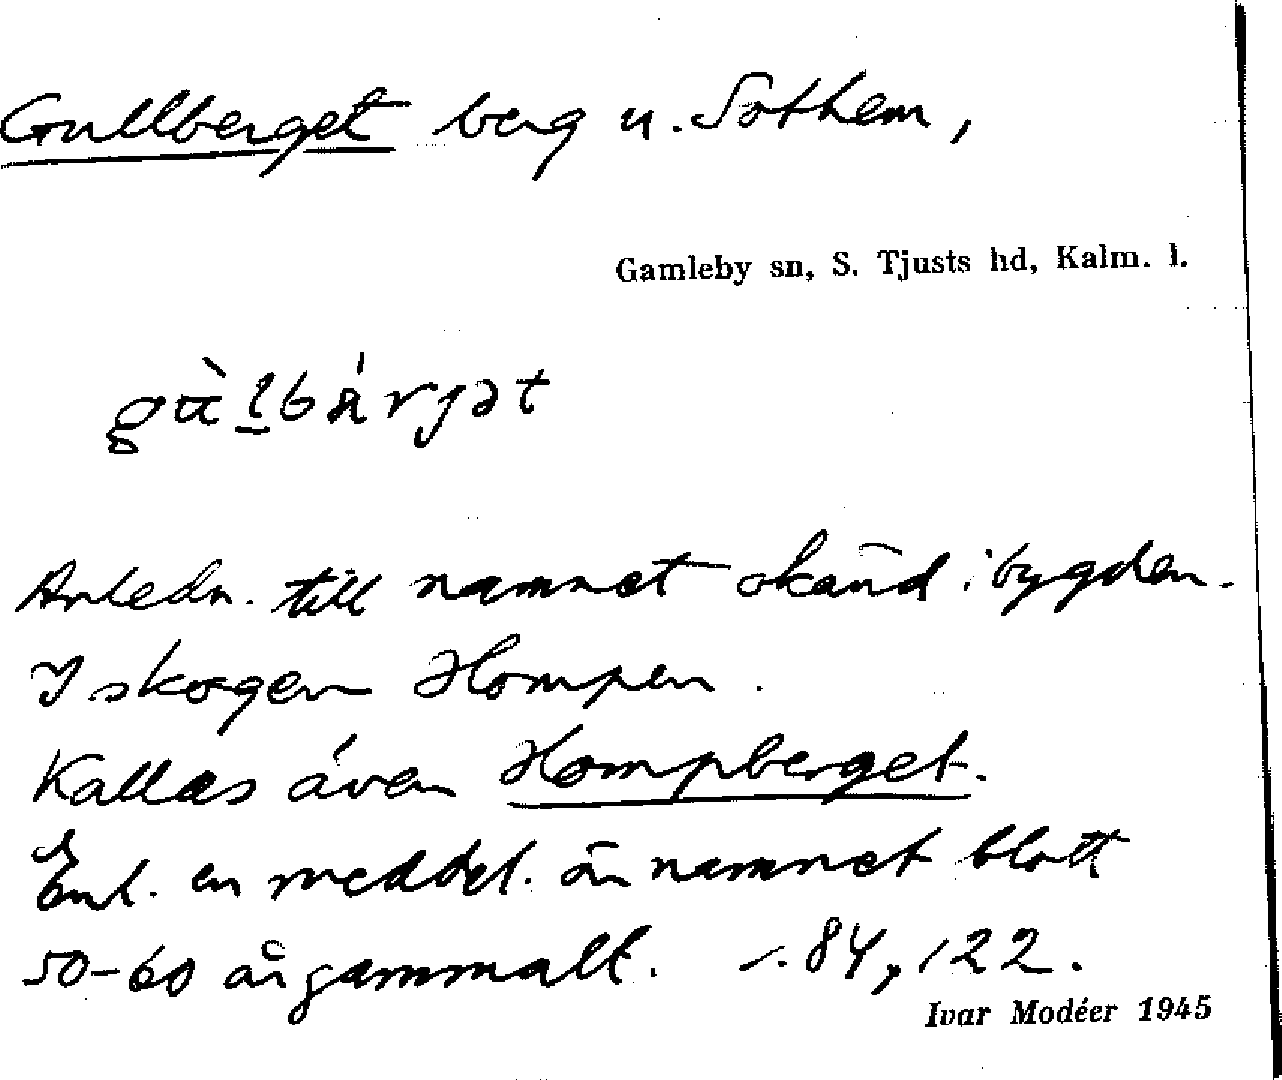 Gullberget berg u. Sothem,
Gamleby sn, S. Tjusts hd, Kalm. l.
Anledn. till namnet okänd i bygden.
I skogen Hompen.
Kallas även Hompberget.
Enl. en meddel. är namnet blott
50-60 år gammalt. s. 84, 122.
Ivar Modéer 1945